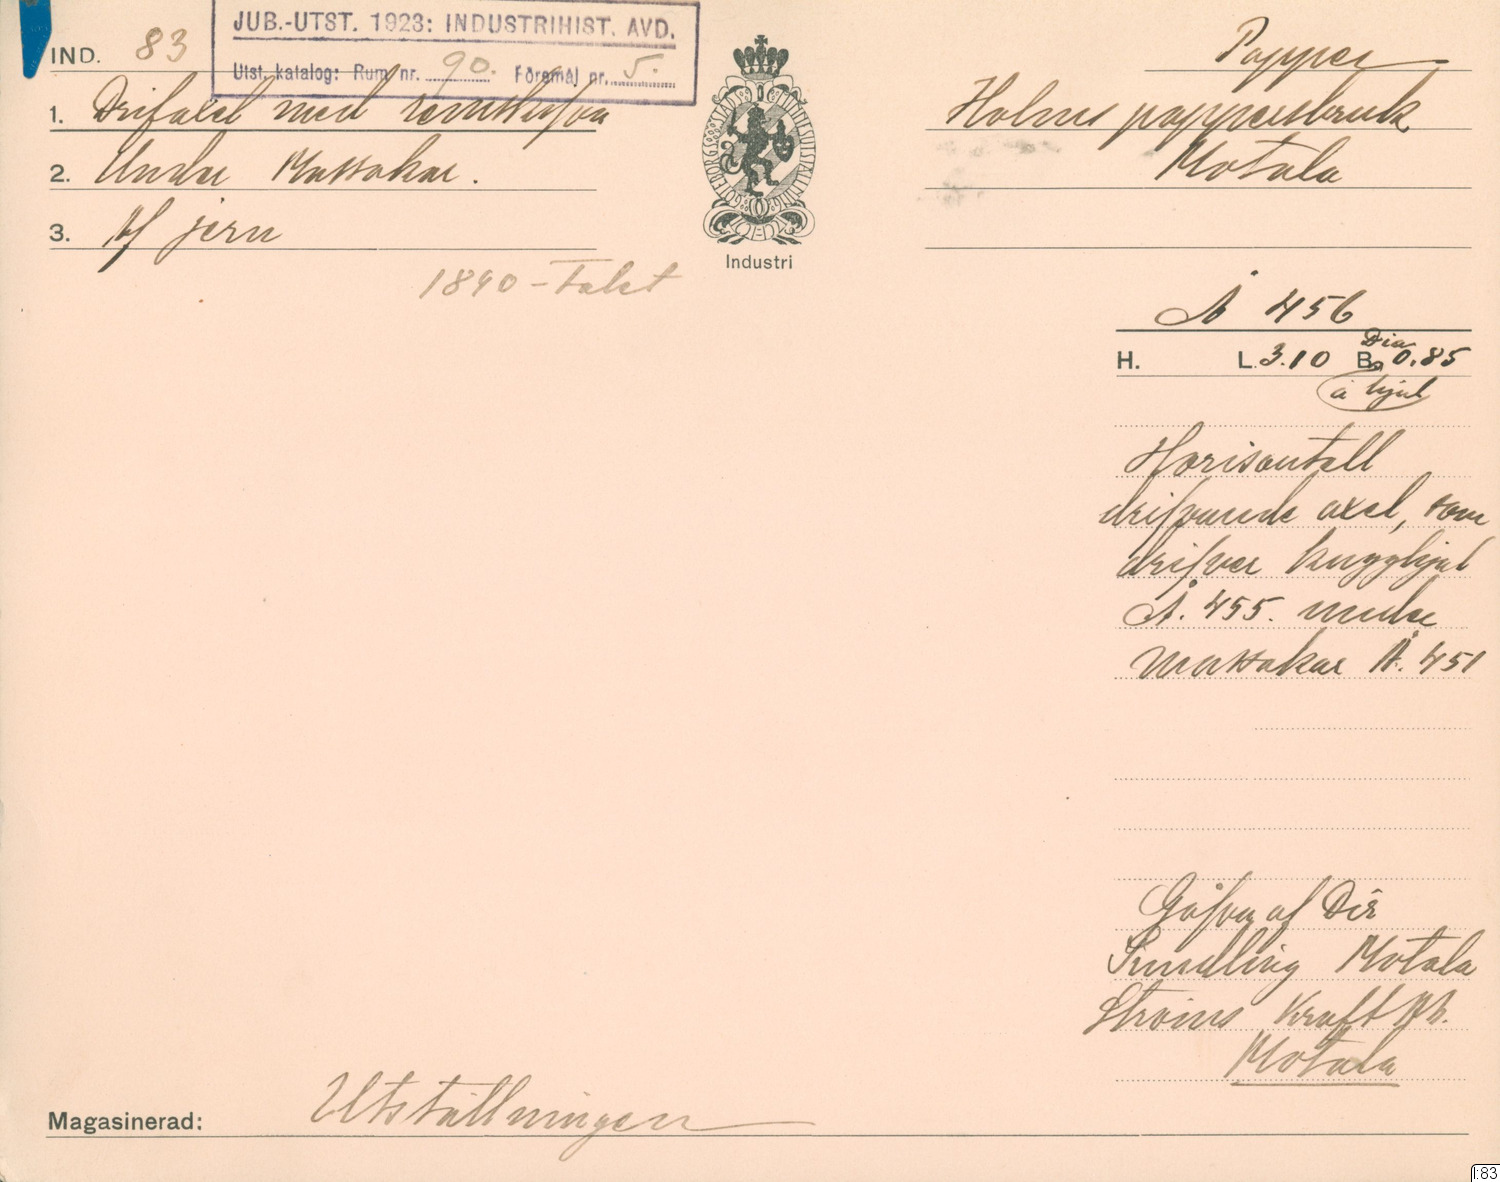 JUB.-UTST. 1923: INDUSTRIHIST. AVD.
Utst. katalog: Rum nr. 90. Föremål nr. 5.
IND. 83
1. Drifaxel med remskifva
2. Under Massakar.
3. Af jern
1890-talet
GÖTEBORGS STADS JUBILEUMSUTSTÄLLNING
Industri
Papper
Holms pappersbruk
Motala
Å 456
H. L. 3.10 B. Dia 0.85
å hjul
Horisontell
drifvande axel, som
drifver kugghjul
Å. 455. under
massakar Å. 451
Gåfva af Dir
Motala
Ströms Kraft AB.
Motala
Magasinerad: Utställningen
I:83